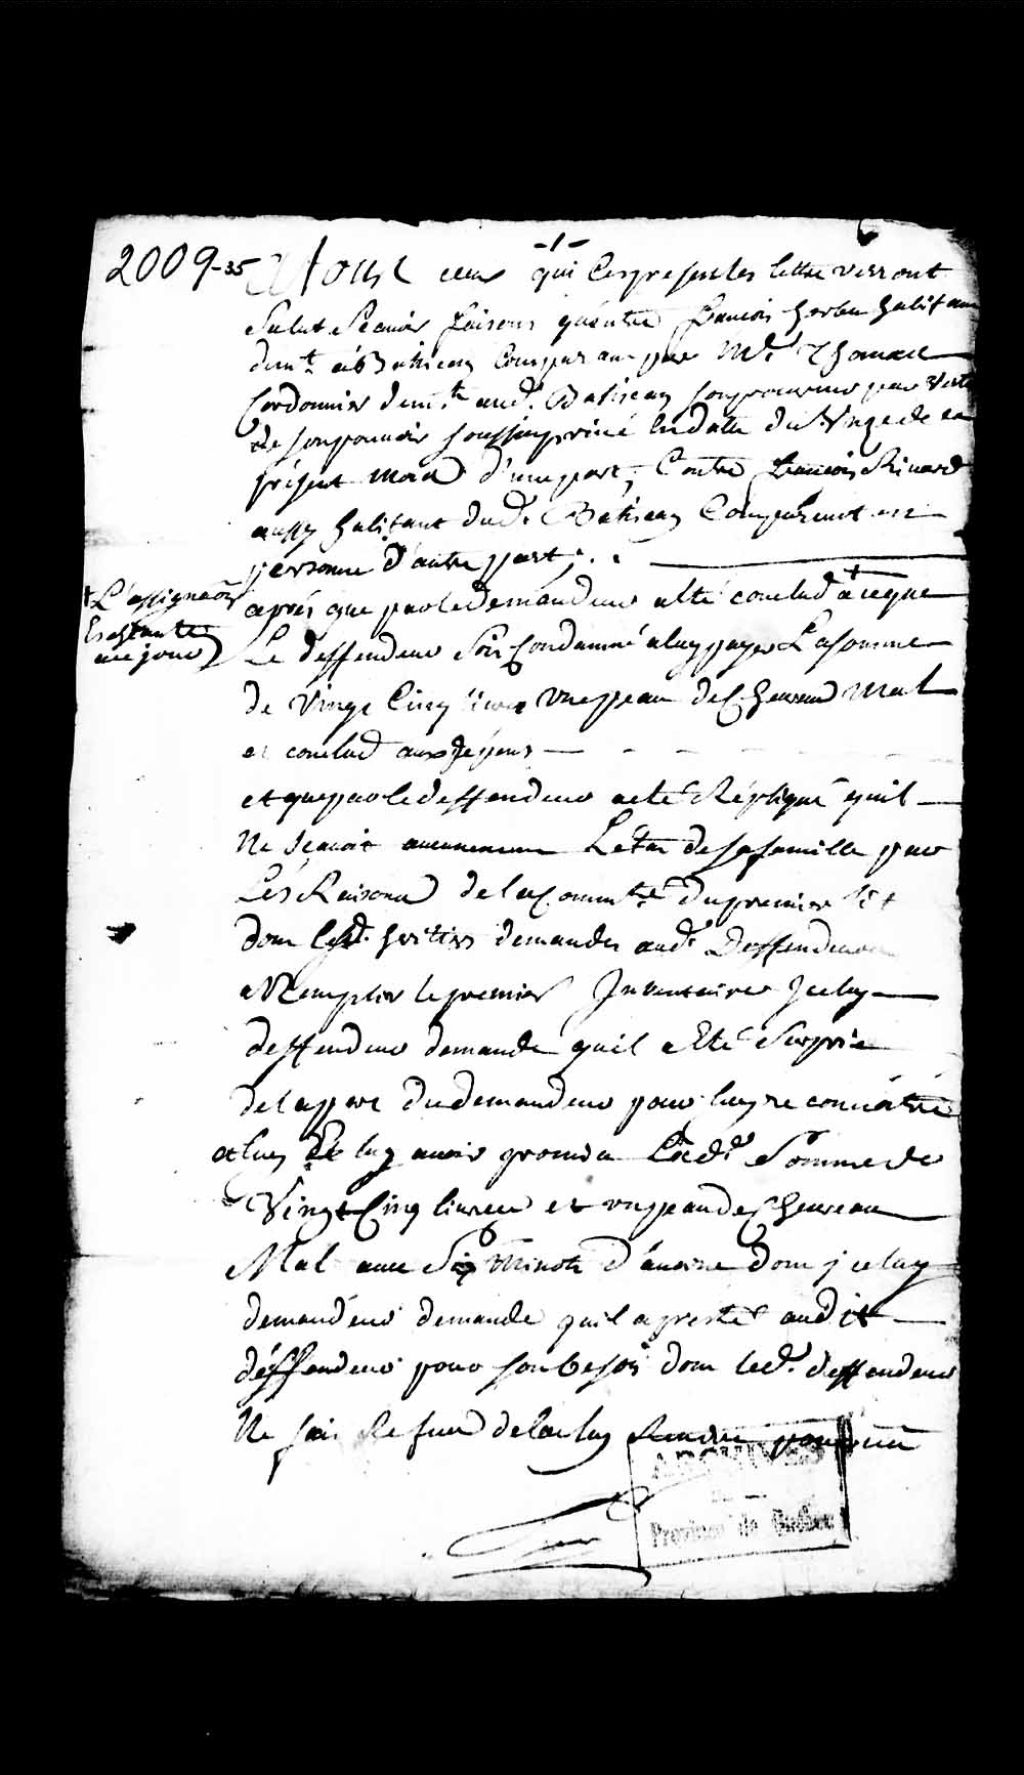 -1-
2009-35
A Tous ceux qui Ces presentes lettre verront
Salut Scavoir faisons qu'entre francois habitant
dem.t a Batiscan Comparant par M.e
Cordonnier dem.t aud. Batiscan son procureur par vertu
de son pouvoir soussing privé En datte du Unze de ce
présent mois d'une part; Contre francois Rivard
aussy habitant dud. Batiscan Comparant en
personne d'autre part;
après que par le demandeur a Eté conclud + a ce que
+ L'assignaōn
Escheante
a ce jour
Le deffendeur Soit Condamné a luy payer La somme
de Vingt Cinq livre une peau de Cheureau Mal
et conclud aux dépens
et que par le deffendeur a eté Répliqué qu'il
Ne scavoit aucunement Letat de sa famille par
Les Raisons de la Comm.té du premier lit
dont Lesd. heritiers demandes aud. Deffendeur
a Remplir le premier Inventaire Jceluy
deffendeur demande qu'il a Eté Surpris
de la part du demandeur pour luy reconnoitre
et luy avoir promis Lad.e Somme de
Vingt Cinq livres et une peau de Cheureau
Mal avec Six Minots d'avoine dont jceluy
demandeur demande qu'il a presté audit
déffendeur pour son besoin dont led. deffendeur
Ne fait Refus de la luy Rendre
ARCHIVES
Province de Québec